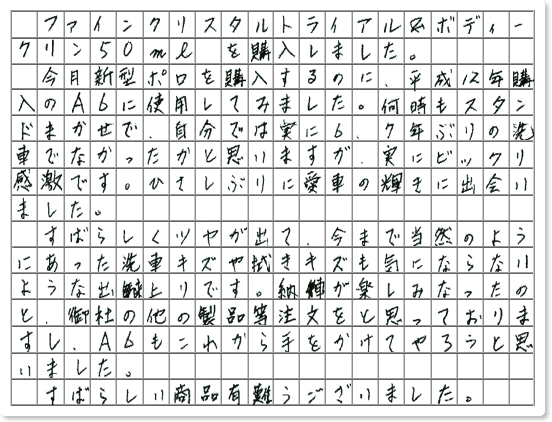 ファインクリスタルトライアル&ボディー
クリン50ml を購入しました。
今月新型ポロを購入するのに、平成12年購
入のA6に使用してみました。何時もスタン
ドまかせで、自分では実に6、7年ぶりの洗
車でなかったかと思いますが、実にビックリ
感激です。ひさしぶりに愛車の輝きに出会い
ました。
すばらしくツヤが出て、今まで当然のよう
にあった洗車キズや拭きキズも気にならない
ような出来上りです。納車が楽しみなったの
と、御社の他の製品等注文をと思っておりま
すし、A6もこれから手をかけてやろうと思
いました。
すばらしい商品有難うございました。